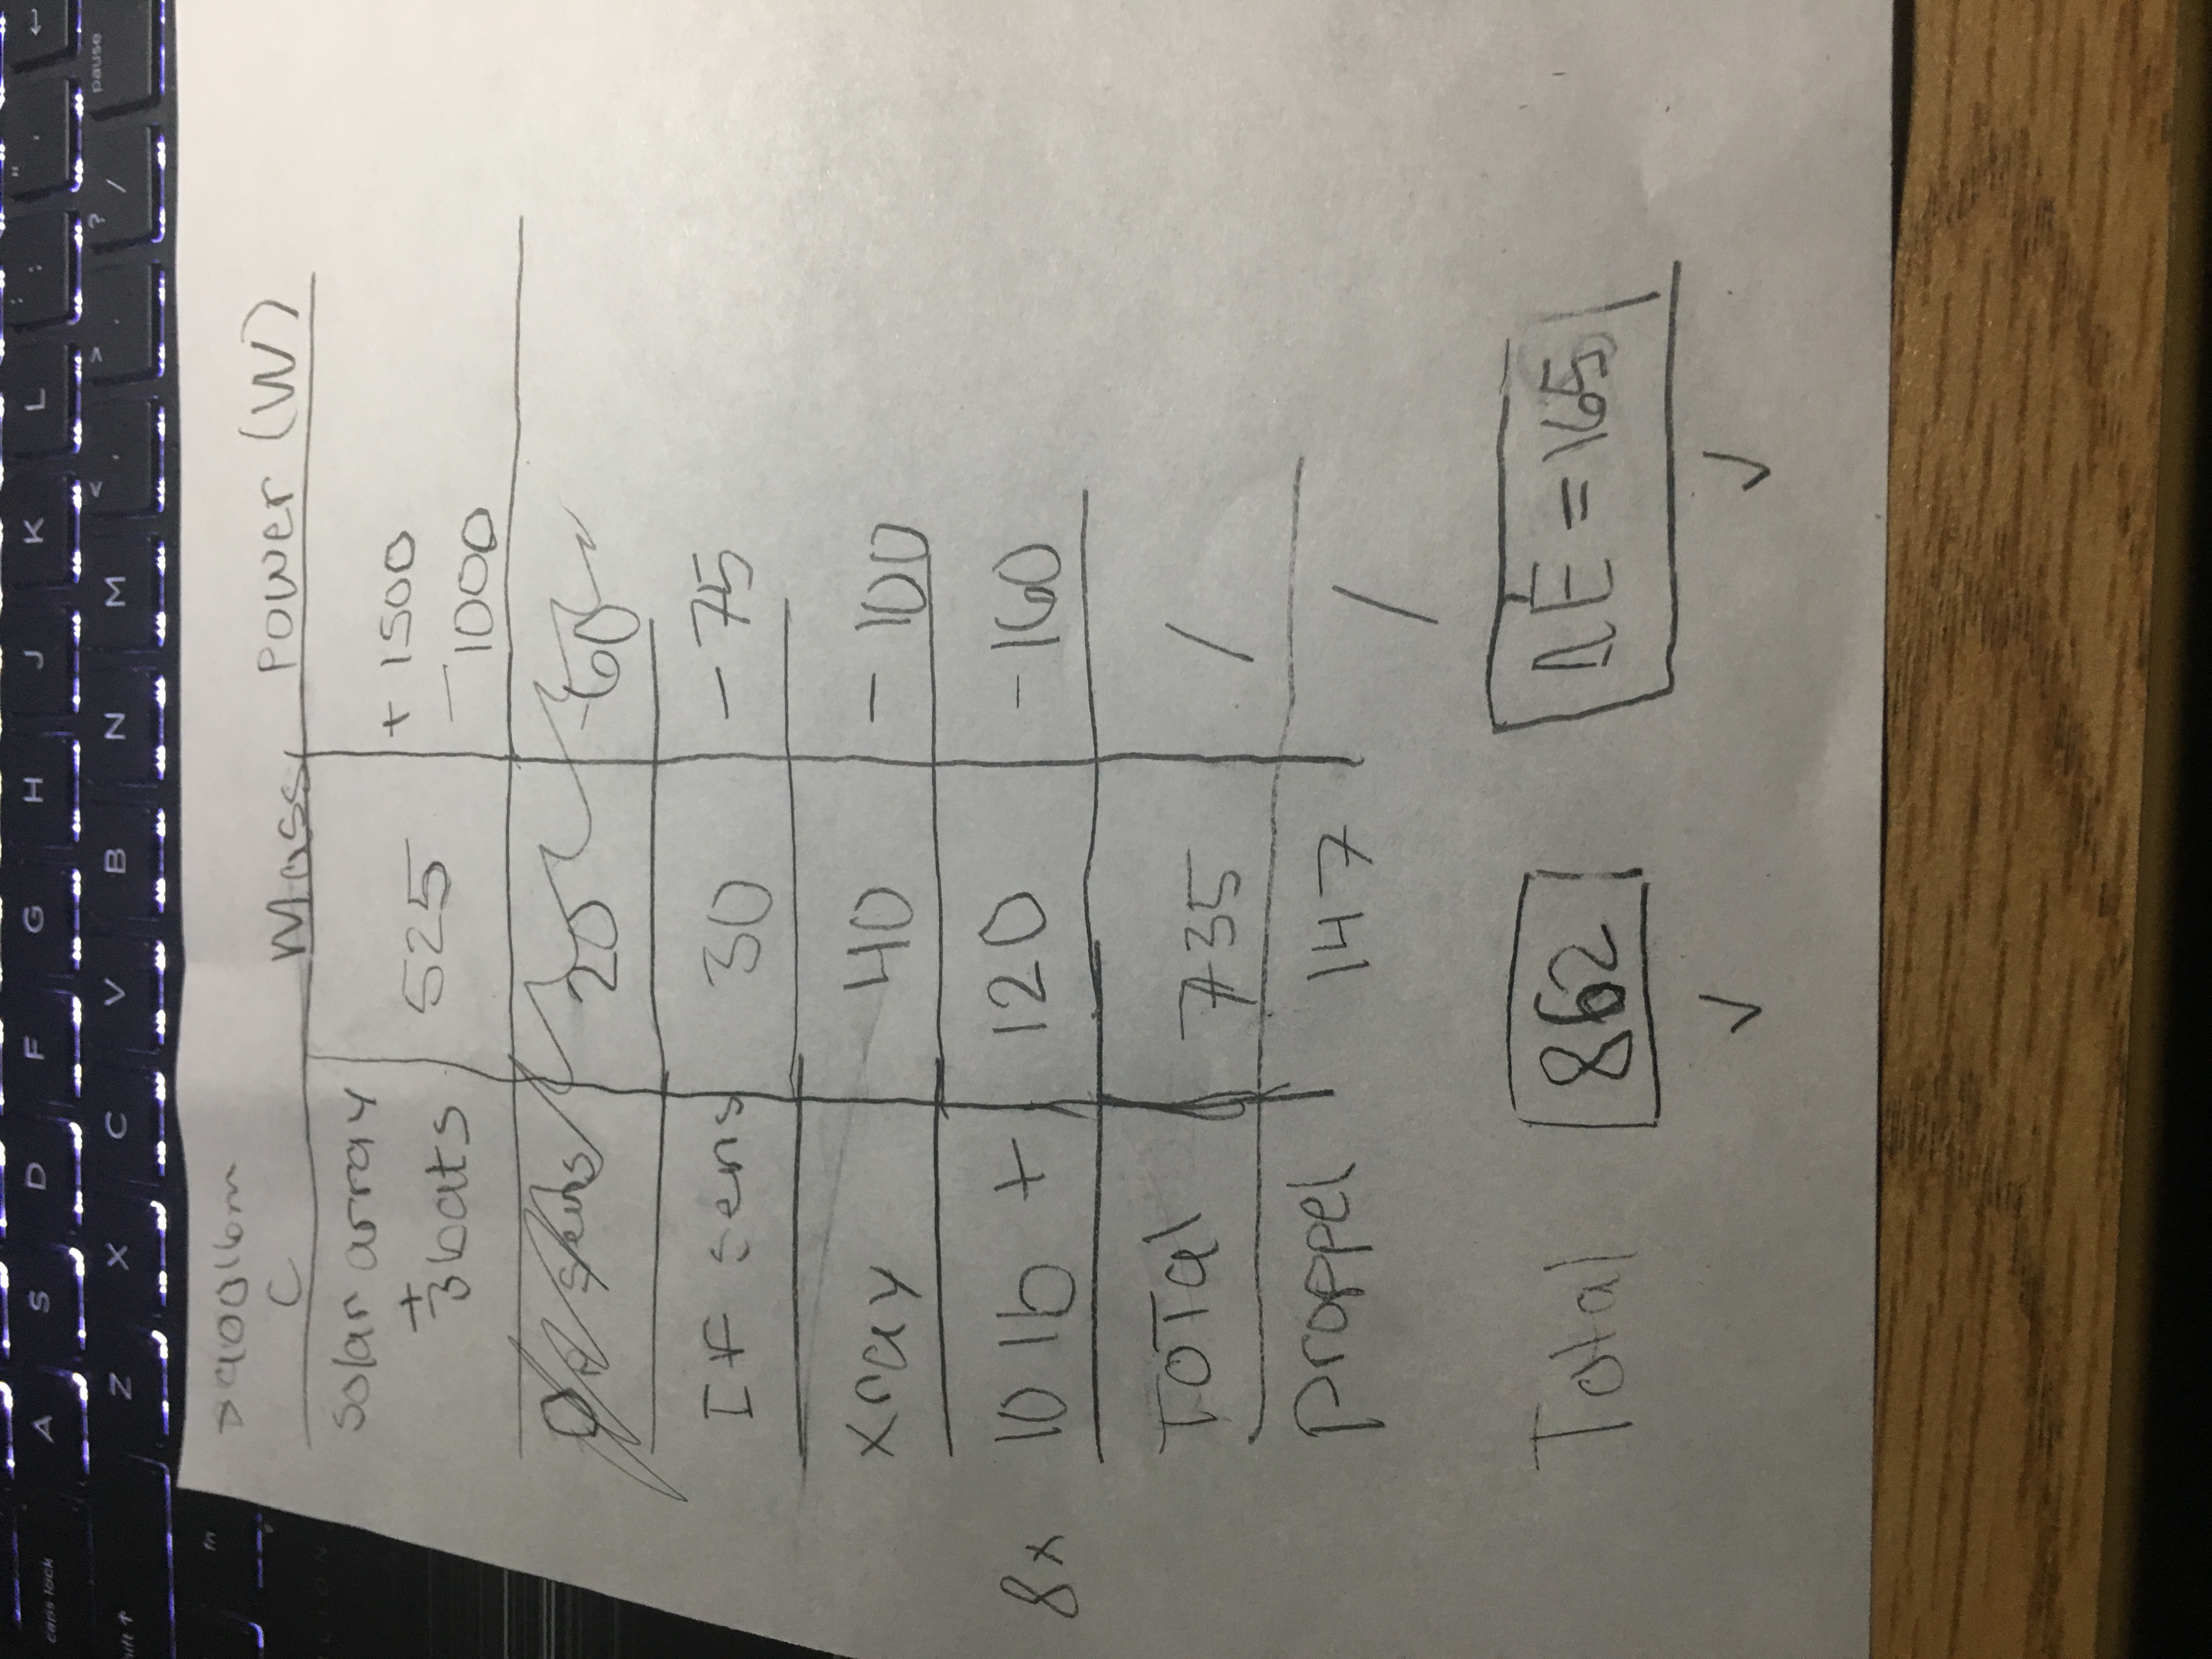 caps lock A S D F G H J K L : ; " ' ←
shift ↑ Z X C V B N M < , > . ? / pause
fn
>900lbm
C Mass Power (W)
solar array
+ 525 + 1500
3bats - 1000
Op sens 20 -60
IF sens 30 - 75
xray 40 - 100
8x 10 lb + 120 - 160
Total 735 /
proppel 147 /
Total 862 ΔE = 165
✓ ✓